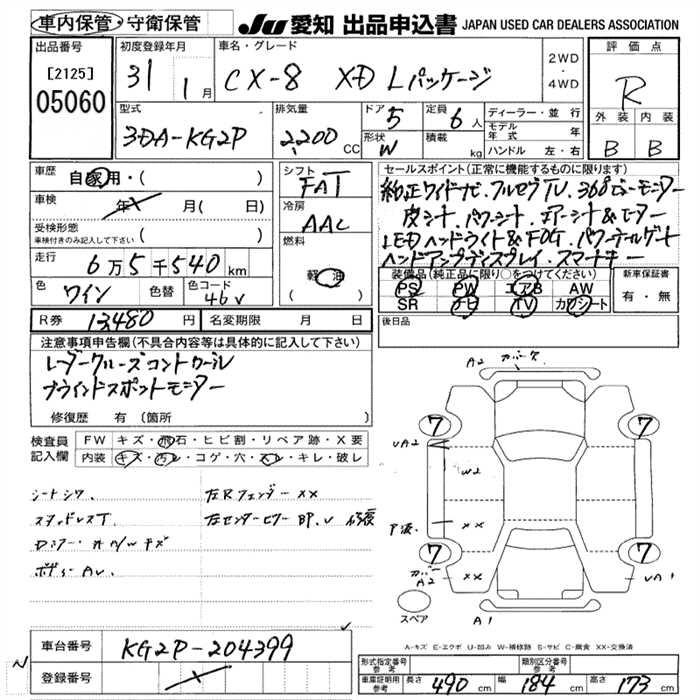 車内保管・守衛保管 JU 愛知 出品申込書 JAPAN USED CAR DEALERS ASSOCIATION
出品番号 [2125] 05060
初度登録年月 31 1月
車名・グレード CX-8 XD Lパッケージ 2WD・4WD
評価点 R
外装 内装
B B
型式 3DA-KG2P
排気量 2,200CC
ドア 5 定員 6人
形状 W 積載 kg
ディーラー・並行
モデル年式 年
ハンドル 左・右
車歴 自家用・( )
車検 年 月(日)
受検形態 車検付きのみ記入して下さい ( )
走行 6万5千540km
色 ワイン 色替 色コード 46V
シフト FAT
冷房 AAC
燃料 軽油
セールスポイント(正常に機能するものに限ります)
純正ワイドナビ.フルセグTV.368ビューモニター
皮シート.パワーシート.エアーシート&ヒーター
LEDヘッドライト&FOG.パワーテールゲート
ヘッドアップディスプレイ.スマートキー
装備品(純正品に限り○をつけてください)
PS PW エアB AW
SR ナビ TV カワシート
新車保証書 有・無
R券 13,480円 名変期限 月 日
後日品
注意事項申告欄(不具合内容等は具体的に記入して下さい)
レーダークルーズコントロール
ブラインドスポットモニター
修復歴 有(箇所 )
検査員記入欄
FW キズ・飛石・ヒビ割・リペア跡・X要
内装 キズ・汚レ・コゲ・穴・スレ・キレ・破レ
シートシワ. 左Rフェンダー XX
スタッドレスT. 左センターピラー BP.V 修復
ボディ AU.
A2 カバーX
7 7
UA2
W2
P波.
XX
7 7
カバーA2 XX
UA1
スペア
A1
A-キズ E-エクボ U-凹み W-補修跡 S-サビ C-腐食 XX-交換済
車台番号 KG2P-204399
登録番号
形式指定番号 参考 類別区分番号 参考
車庫証明用 参考 長さ 490cm 幅 184cm 高さ 173cm